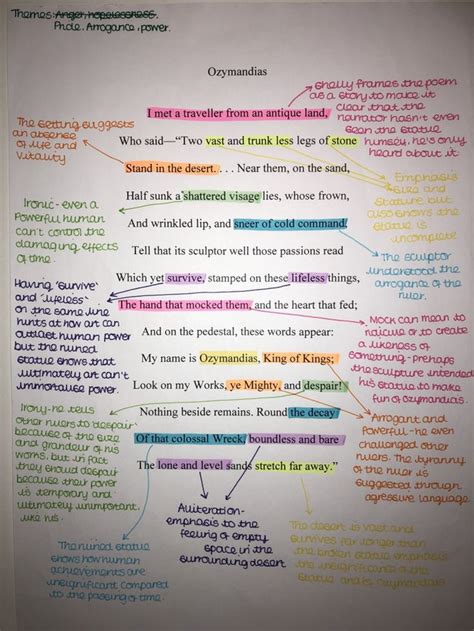 Themes: Anger, hopelessness.
Pride, Arrogance, power.
Ozymandias
Shelly frames the poem
as a story to make it
clear that the
narrator hasn't even
seen the statue
himself, he's only
heard about it
I met a traveller from an antique land,
The setting suggests
an absence
of life and
vitality
Who said—“Two vast and trunk less legs of stone
Stand in the desert. . . . Near them, on the sand,
Emphasis
size and
stature but
also shows the
statue is
incomplete
Half sunk a shattered visage lies, whose frown,
Ironic- even a
powerful human
can't control the
damaging effects
of time.
And wrinkled lip, and sneer of cold command,
Tell that its sculptor well those passions read
The sculptor
understood the
arrogance of the
ruler.
Which yet survive, stamped on these lifeless things,
Having 'survive'
and 'lifeless'
on the same line
hints at how art can
outlast human power
but the ruined
statue shows that
ultimately art can't
immortalise power.
The hand that mocked them, and the heart that fed;
Mock can mean to
ridicule or to create
a likeness of
something- perhaps
the sculpture intended
his statue to make
fun of ozymandias
And on the pedestal, these words appear:
My name is Ozymandias, King of Kings;
Look on my Works, ye Mighty, and despair!
Irony- he tells
other rulers to 'despair'
because of the size
and grandeur of his
works, but in fact
they should despair
because their power
is temporary and
ultimately unimportant,
like his.
Nothing beside remains. Round the decay
Arrogant and
Powerful- he even
challenged other
rulers. The tyranny
of the ruler is
suggested through
agressive language
Of that colossal Wreck, boundless and bare
The lone and level sands stretch far away.”
Alliteration-
emphasis to the
feeling of empty
space in the
surrounding desert
The desert is vast and
survives far longer than
the broken statue emphasis
the insignificance of the
statue and is Ozymandias
The ruined statue
shows how human
achievements are
insignificant compared
to the passing of time.